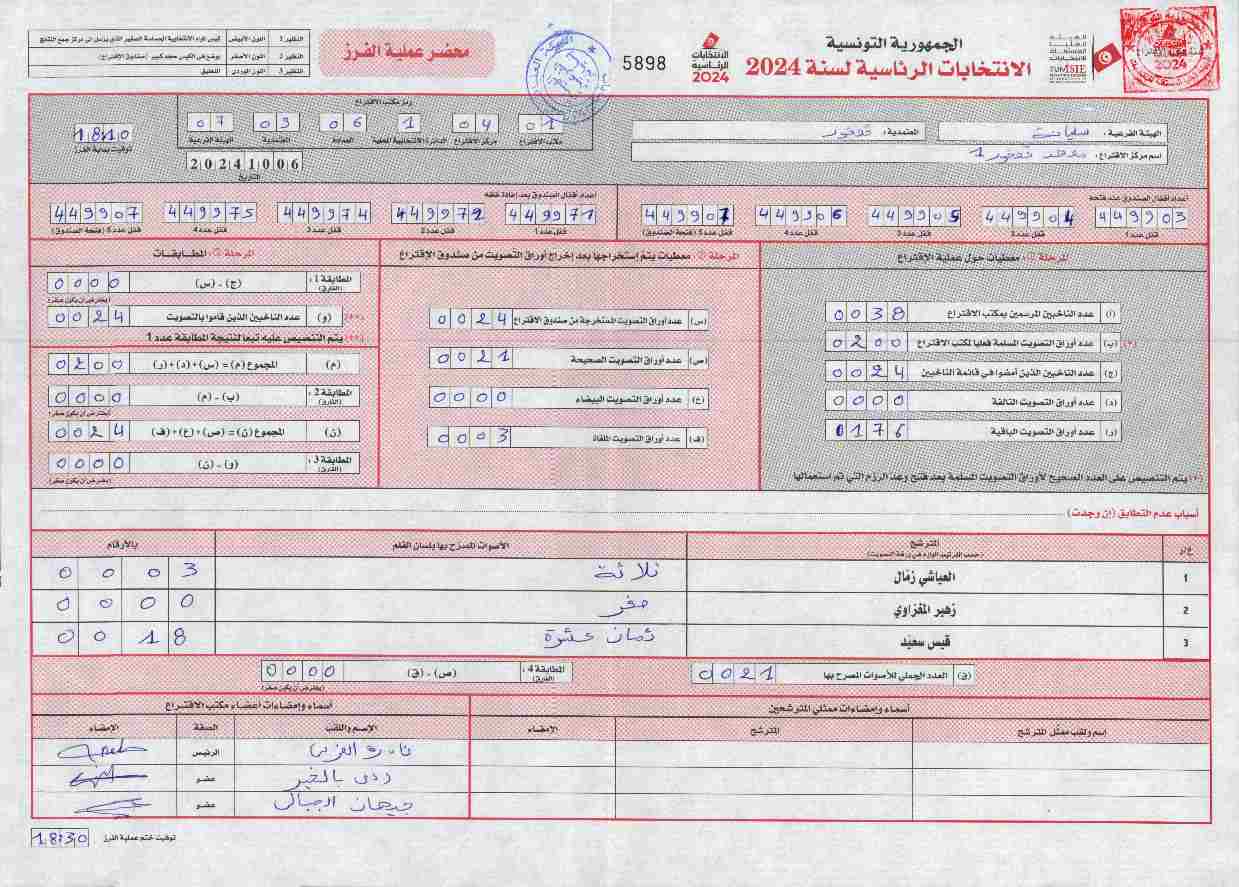 الجمهورية التونسية
الانتخابات الرئاسية لسنة 2024
الانتخابات الرئاسية 2024
5898
محضر عملية الفرز
النظير 1 اللون الأبيض
النظير 2 اللون الأصفر
النظير 3 اللون الوردي التعليق
الهيئة الفرعية : سليانة المعتمدية :
اسم مركز الاقتراع :
رمز مكتب الاقتراع
01 04 1 06 03 07
مكتب الاقتراع مركز الاقتراع الدائرة الانتخابية المحلية العمادة المعتمدية الهيئة الفرعية
18:10
توقيت بداية الفرز
20241006
التاريخ
أعداد أقفال الصندوق عند فتحه
449903 449904 449905 449906 449907
قفل عدد 1 قفل عدد 2 قفل عدد 3 قفل عدد 4 قفل عدد 5 (فتحة الصندوق)
أعداد أقفال الصندوق بعد إعادة غلقه
449971 449972 449974 449975 449907
قفل عدد 1 قفل عدد 2 قفل عدد 3 قفل عدد 4 قفل عدد 5 (فتحة الصندوق)
المرحلة 1: معطيات حول عملية الاقتراع
(أ) عدد الناخبين المرسمين بمكتب الاقتراع 0038
(*) (ب) عدد أوراق التصويت المسلمة فعليا لمكتب الاقتراع 0200
(ج) عدد الناخبين الذين أمضوا في قائمة الناخبين 0024
(د) عدد أوراق التصويت التالفة 0000
(ر) عدد أوراق التصويت الباقية 0176
(*) يتم التنصيص على العدد الصحيح لأوراق التصويت المسلمة بعد فتح وعد الرزم التي تم استعمالها
المرحلة 2: معطيات يتم إستخراجها بعد إخراج أوراق التصويت من صندوق الاقتراع
(س) عدد أوراق التصويت المستخرجة من صندوق الاقتراع 0024
(ص) عدد أوراق التصويت الصحيحة 0021
(ع) عدد أوراق التصويت البيضاء 0000
(ف) عدد أوراق التصويت الملغاة 0003
المرحلة 3: المطابقات
المطابقة 1: (الفارق) (ج) - (س) 0000
(يفترض أن يكون صفر)
(**) (و) عدد الناخبين الذين قاموا بالتصويت 0024
(**) يتم التنصيص عليه تبعا لنتيجة المطابقة عدد 1
(م) المجموع (م) = (س)+(د)+(ر) 0200
المطابقة 2: (الفارق) (ب) - (م) 0000
(يفترض أن يكون صفر)
(ن) المجموع (ن) = (ص)+(ع)+(ف) 0024
المطابقة 3: (الفارق) (و) - (ن) 0000
(يفترض أن يكون صفر)
أسباب عدم التطابق (إن وجدت)
ع/ر المترشح الأصوات المصرح بها بلسان القلم بالأرقام
(حسب الترتيب الوارد في ورقة التصويت)
1 العياشي زمّال ثلاثة 0003
2 زهير المغزاوي صفر 0000
3 قيس سعيّد ثمان عشرة 0018
(ق) العدد الجملي للأصوات المصرح بها 0021
المطابقة 4: (الفارق) (ص) - (ق) 0000
(يفترض أن يكون صفر)
أسماء وإمضاءات ممثلي المترشحين
إسم ولقب ممثل المترشح المترشح الإمضاء
أسماء وإمضاءات أعضاء مكتب الاقتراع
الإسم واللقب الصفة الإمضاء
الرئيس
عضو
جيهان عضو
توقيت ختم عملية الفرز 18:30